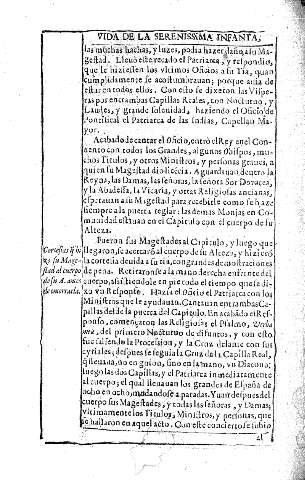 VIDA DE LA SERENISSIMA INFANTA,
las muchas hachas, y luzes, podia hazer daño a su Ma-
gestad. Lleuò este recado el Patriarca, y respondio,
que le hiziessen los vltimos Oficios a su Tia, quan
cumplidamente se acostumbrauan; porque auia de
estar en todos ellos. Con esto se dixeron las Vispe-
ras por entrambas Capillas Reales, con Nocturno, y
Laudes, y grande solenidad, haziendo el Oficio de
Pontifical el Patriarca de las Indias, Capellan Ma-
yor.
Acabado de cantar el Oficio, entrò el Rey en el Con-
uento con todos los Grandes, algunos Obispos, mu-
chos Titulos, y otros Ministros, y personas graues, a
quien su Magestad dio licēcia. Aguardauan dentro la
Reyna, las Damas, las señoras, la señora Sor Dorotea,
y la Abadessa, la Vicaria, y otras Religiosas ancianas,
esperauan a su Magestad para recebirle como se haze
siempre a la puerta reglar: las demas Monjas en Co-
munidad estauan en el Capitulo con el cuerpo de su
Alteza.
Fueron sus Magestades al Capitulo, y luego que
llegaron, se acercarō al cuerpo de su Alteza, y hizierō
la cortesia deuida a su tia, con grandes demostraciones
de pena. Retiraronse a la mano derecha enfrente del
cuerpo, assistiendo en pie todo el tiempo que se di-
xo vn Responso. Hazia el Oficio el Patriarca con los
Ministros que le ayudauan. Cantauan entrambas Ca-
pillas desde la puerta del Capitulo. En acabado el Res-
ponso, començaron las Religiosas el Psalmo, Verba
mea, del primero Nocturno de difuntos, y con esto
fue saliendo la Procession, y la Cruz delante con sus
cyriales; despues se seguia la Cruz de la Capilla Real,
q̄ lleuaua, no en guion, sino en la mano, vn Diacono;
luego las dos Capillas, y el Patriarca inmediatamente
al cuerpo; el qual lleuauan los grandes de España de
ocho en ocho, mudandose a paradas. Yuan despues del
cuerpo sus Magestades, y todas las señoras, y Damas;
vltimamente los Titulos, Ministros, y personas, que
se hallaron en aquel acto. Con este concierto se subio
al
Cortesias q̄ hi-
zo su Mages-
tad al cuerpo
de su A. antes
de enterrarla.